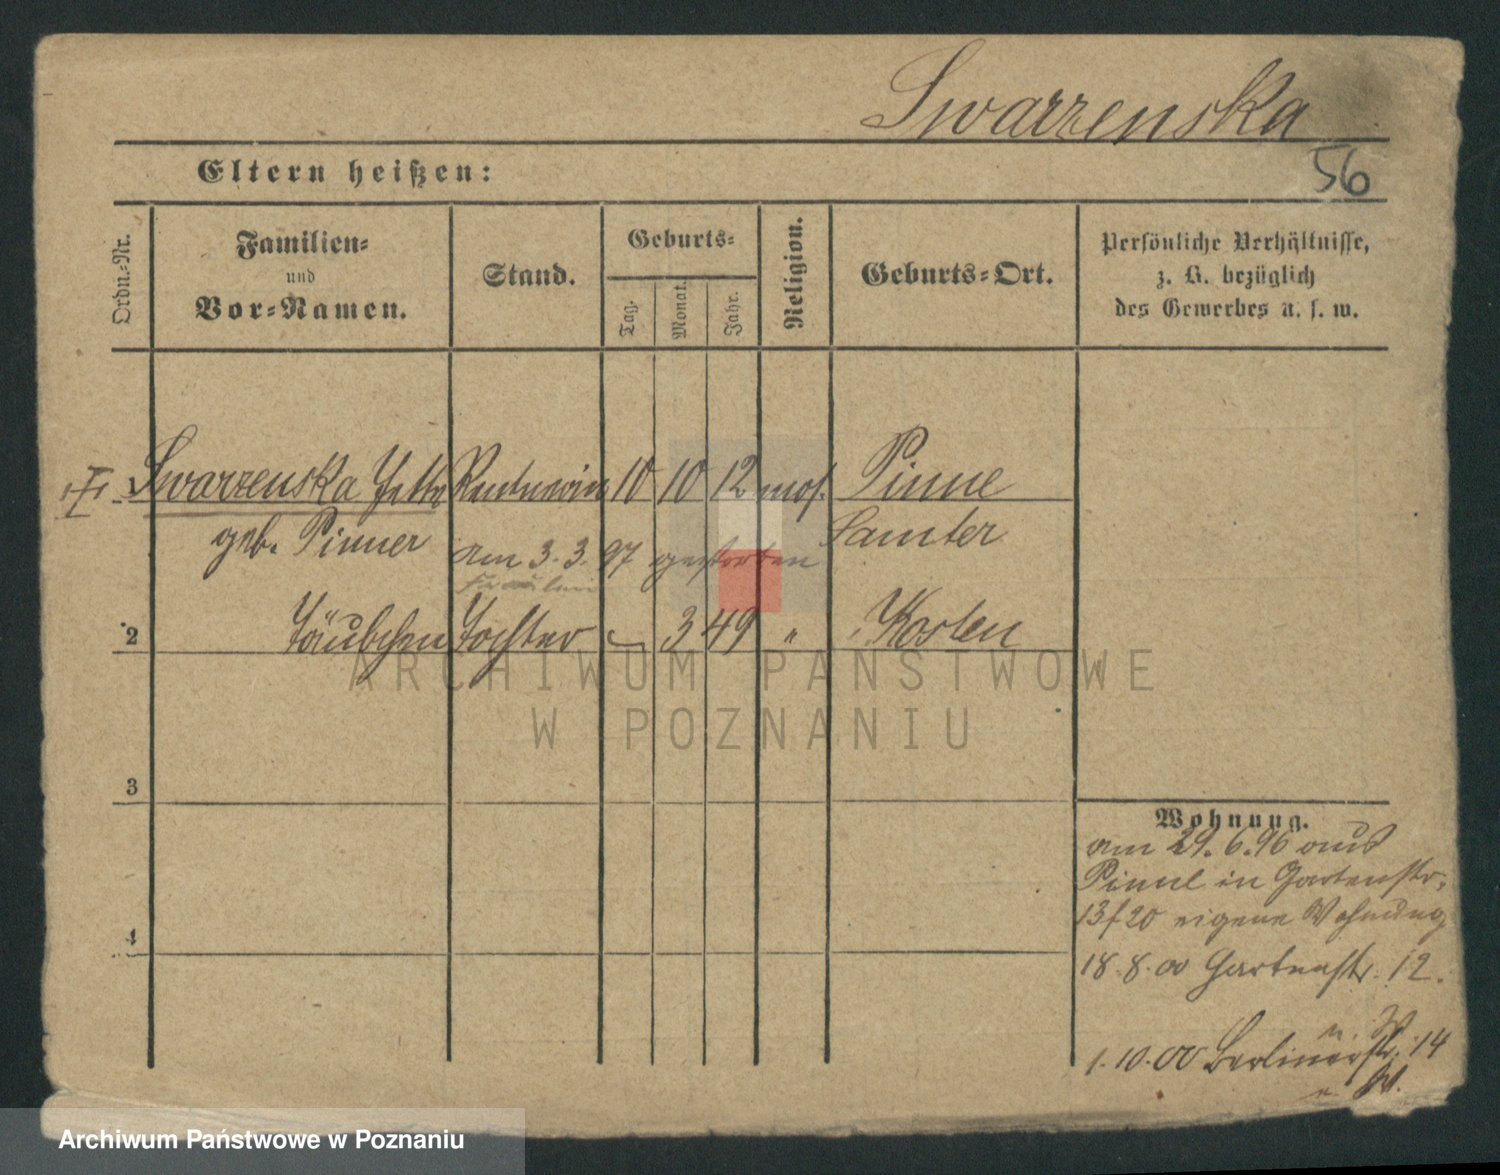 Swarzenska
Eltern heißen:
56
Ordn.-Nr.
Familien-
und
Vor-Namen.
Stand.
Geburts-
Tag.
Monat.
Jahr.
Religion.
Geburts-Ort.
Persönliche Verhältnisse,
z. B. bezüglich
des Gewerbes u. s. w.
Swarzenska Jette Rentnerin 10 10 12 mos. Pinne
geb. Pinner Samter
am 3.3.97 gestorben
Fräulein
2 Täubchen Tochter 3 49 " Kosten
3
4
Wohnung.
am 29.6.96 aus
Pinne in Gartenstr.
13/20 eigene Wohnung
18.8.00 Gartenstr. 12.
1.10.00 Berlinerstr. 14
ARCHIWUM PAŃSTWOWE
W POZNANIU
Archiwum Państwowe w Poznaniu